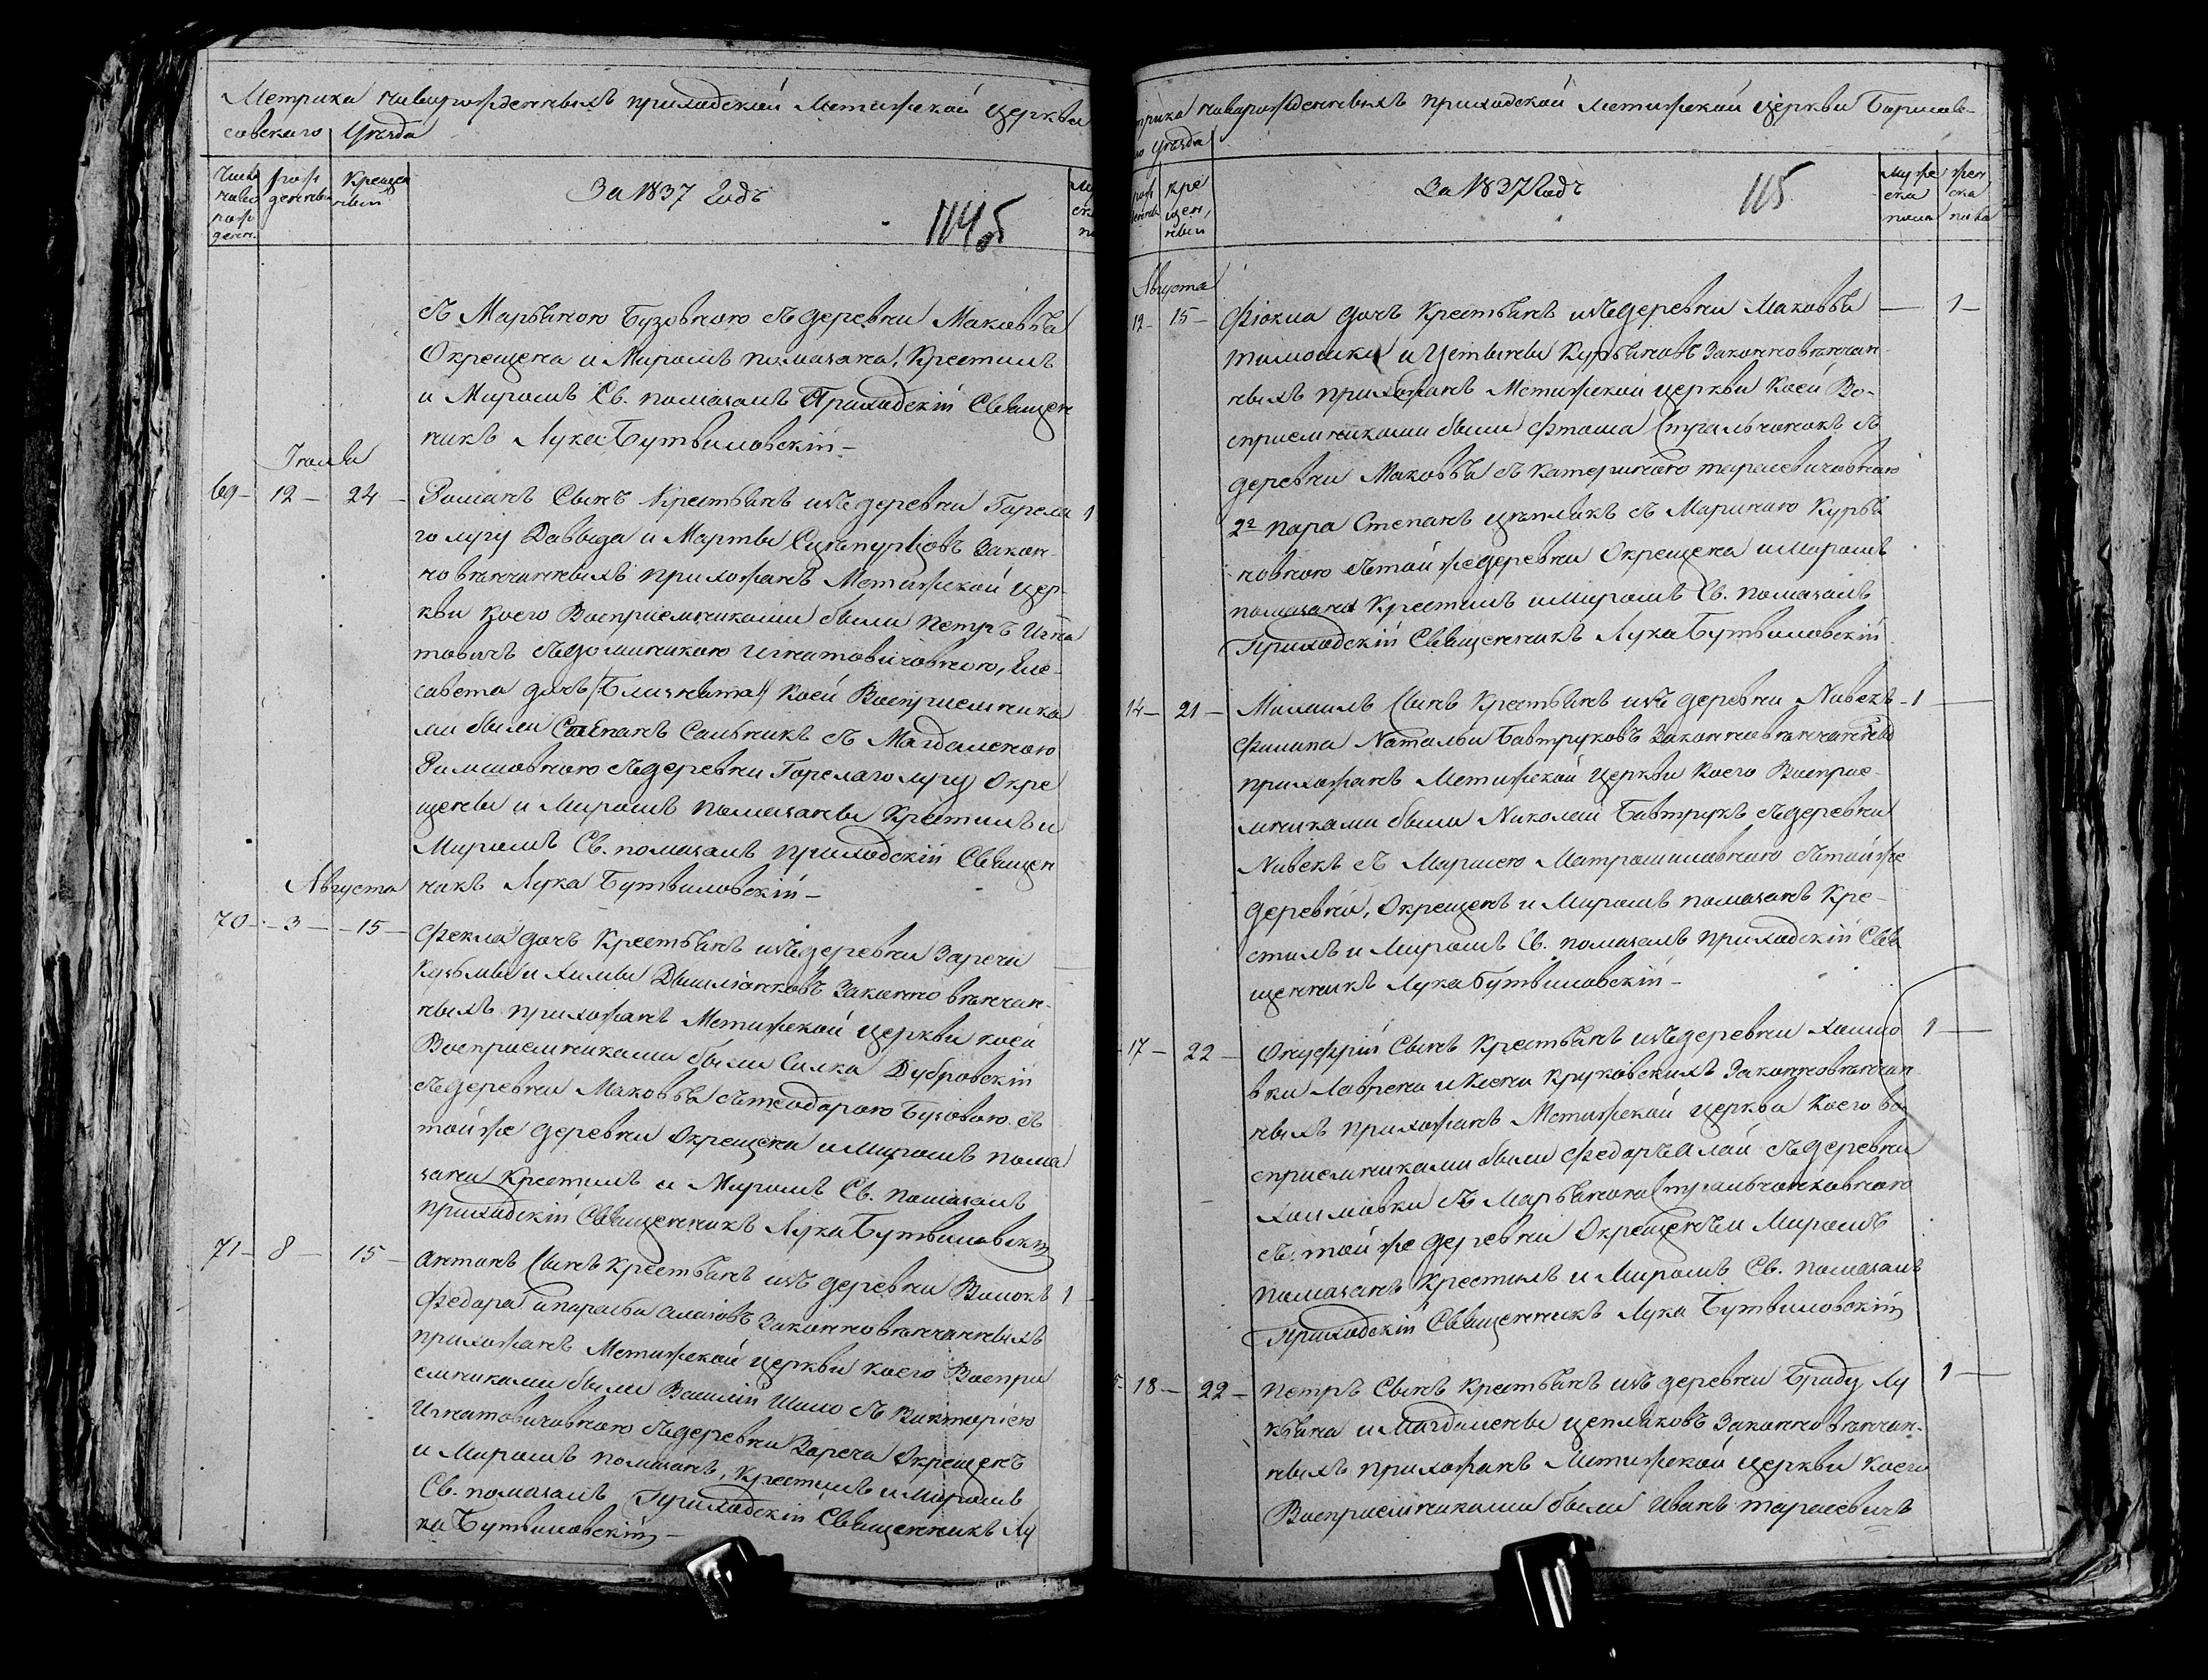 Метрика новорожденныхъ приходской Метижской церкви
совского Уезда
Число
ново
рож
денн.
рож
денныи
Крещен
ныи
За 1837 Годъ
114об
съ Марьяною Бузовною съ деревни Маковья
Окрещена и Миромъ помазана, Крестилъ
и Миромъ Св. помазалъ Приходскій Священ
никъ Лука Бутвиловскій –
Іюля
69 – 12 – 24 – Романъ Сынъ Крестьянъ изъ деревни Горела 1
го лугу Давыда и Марты законо-
но венчанныхъ прихожанъ Метижской цер-
кви коего Восприемниками были Петръ Игна
товичъ съ Доминикою Игнатовичовною, Ели-
савета дочъ /Близнята/ коей Восприемника
ми были Степанъ Сальникъ съ Магдаленою
съ деревни Горелаго лугу Окре
щены и Миромъ помазаны Крестилъ и
Миромъ Св. помазалъ приходскій Священ
никъ Лука Бутвиловскій –
Августа
70 – 3 – 15 – Фекла дочъ Крестьянъ изъ деревни Заречя
Кузьмы и Химы законно венчан-
ныхъ прихожанъ Метижской церкви коей
Восприемниками были Силка Дубровскій
съ деревни Маковья съ Теодорою Бузовою съ
той же деревни Окрещена и Миромъ пома
зана Крестилъ и Миромъ Св. помазалъ
приходскій Священникъ Лука Бутвиловскій
71 – 8 – 15 – Антонъ Сынъ Крестьянъ изъ деревни Волокъ 1
Федора и Парасьи законно венчанныхъ
прихожанъ Метижской церкви коего Воспри
емниками были Василій Шило съ Викторіею
Игнатовичовною съ деревни Заречя Окрещенъ
и Миромъ помазанъ, Крестилъ и Миромъ
Св. помазалъ Приходскій Священникъ Лу
ка Бутвиловскій –
трика новорожденныхъ приходской Метижской церкви Борисов-
го Уезда
рож
денны
кре
щен,
ныи
За 1837 Годъ
115
муже
ска
пола
жен
ска
пола
Августа
12 – 15 – Фіокла дочъ Крестьянъ изъ деревни Маковья — 1 –
Тимошки и Устыны Курьяновъ Законно венчан-
ныхъ прихожанъ Метижской церкви коей Во-
сприемниками были съ
деревни Маковья съ Катериною Тарасевичовною
2я пара Степанъ Цеплякъ съ Мариною Курья
новною съ той же деревни Окрещена и Миромъ
помазана Крестилъ и Миромъ Св. помазалъ
Приходскій Священникъ Лука Бутвиловскій
14 – 21 – Михаилъ Сынъ Крестьянъ изъ деревни Нивекъ – 1 —
Филипа Натальи Бавтруковъ Законно венчанны
прихожанъ Метижской церкви коего Восприе-
мниками были Николай Бавтрукъ съ деревни
Нивекъ съ Мариею Матрашиловною съ той же
деревни, Окрещенъ и Миромъ помазанъ Кре-
стилъ и Миромъ Св. помазалъ приходскій Свя
щенникъ Лука Бутвиловскій –
17 – 22 – Онуфрій Сынъ Крестьянъ изъ деревни Холмо 1 —
вки Лаврена и Круковскихъ Законно венчан-
ныхъ прихожанъ Метижской церкви коего во
сприемниками были Федоръ съ деревни
Холмовки съ Марьяною
съ той же деревни Окрещенъ и Миромъ
помазанъ Крестилъ и Миромъ Св. помазалъ
Приходскій Священникъ Лука Бутвиловскій
18 – 22 – Петръ Сынъ Крестьянъ изъ деревни Броду Лу 1 —
кьяна и Магдалены Цепляковъ Законно венчан-
ныхъ прихожанъ Метижской церкви коего
Восприемниками были Иванъ Тарасевичъ